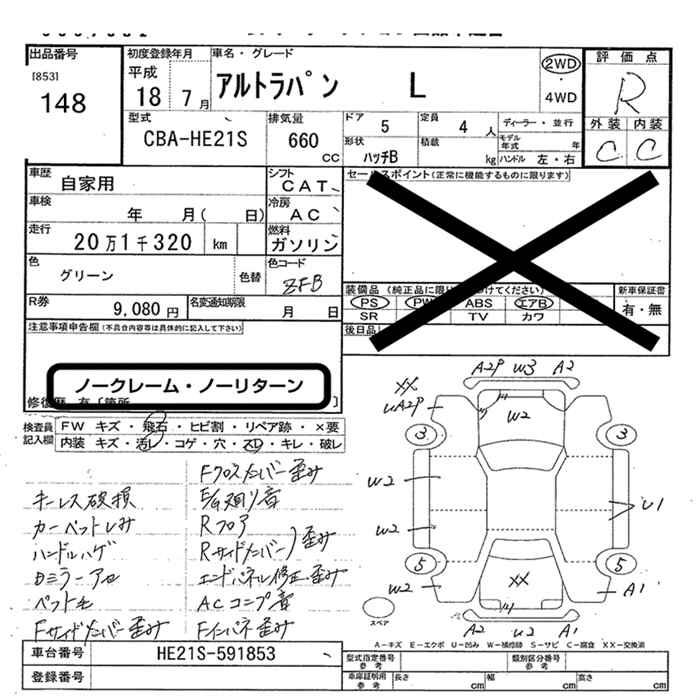 出品番号
[853]
148
初度登録年月
平成
18 7月
車名・グレード
アルトラパン L
2WD
・
4WD
評価点
R
外装 内装
C C
型式
CBA-HE21S
排気量
660
cc
ドア
5
定員
4 人
ディーラー・並行
モデル年式 年
形状
ハッチB
積載
kg
ハンドル 左・右
車歴
自家用
シフト
CAT
車検
年 月( 日)
冷房
AC
走行
20万1千320 km
燃料
ガソリン
色
グリーン
色替
色コード
ZFB
R券
9,080円
名変通知期限
月 日
セールスポイント(正常に機能するものに限ります)
装備品 (純正品に限り てください)
PS PW ABS エアB
SR TV カワ
新車保証書
有・無
後日品
注意事項申告欄(不具合内容等は具体的に記入して下さい)
ノークレーム・ノーリターン
修復歴 有
検査員
記入欄
FW キズ・飛石・ヒビ割・リペア跡・×要
内装 キズ・汚レ・コゲ・穴・スレ・キレ・破レ
Fクロスメンバー歪み
キーレス破損
E/G廻り音
カーペットしみ
Rフロア
ハンドルハゲ
Rサイドメンバー)歪み
エンドパネル修正・歪み
ペット毛
ACコンプ音
Fサイドメンバー歪み
Fインパネ歪み
A2P W3 A2
XX
UA2P
W2
3 3
W2
U1
W2
5 5
W2
XX
A1
A2 U2 A1
スペア
A-キズ E-エクボ U-凹み W-補修跡 S-サビ C-腐食 XX-交換済
車台番号
HE21S-591853
登録番号
型式指定番号
参考
類別区分番号
参考
車庫証明用
参考
長さ cm
幅 cm
高さ cm